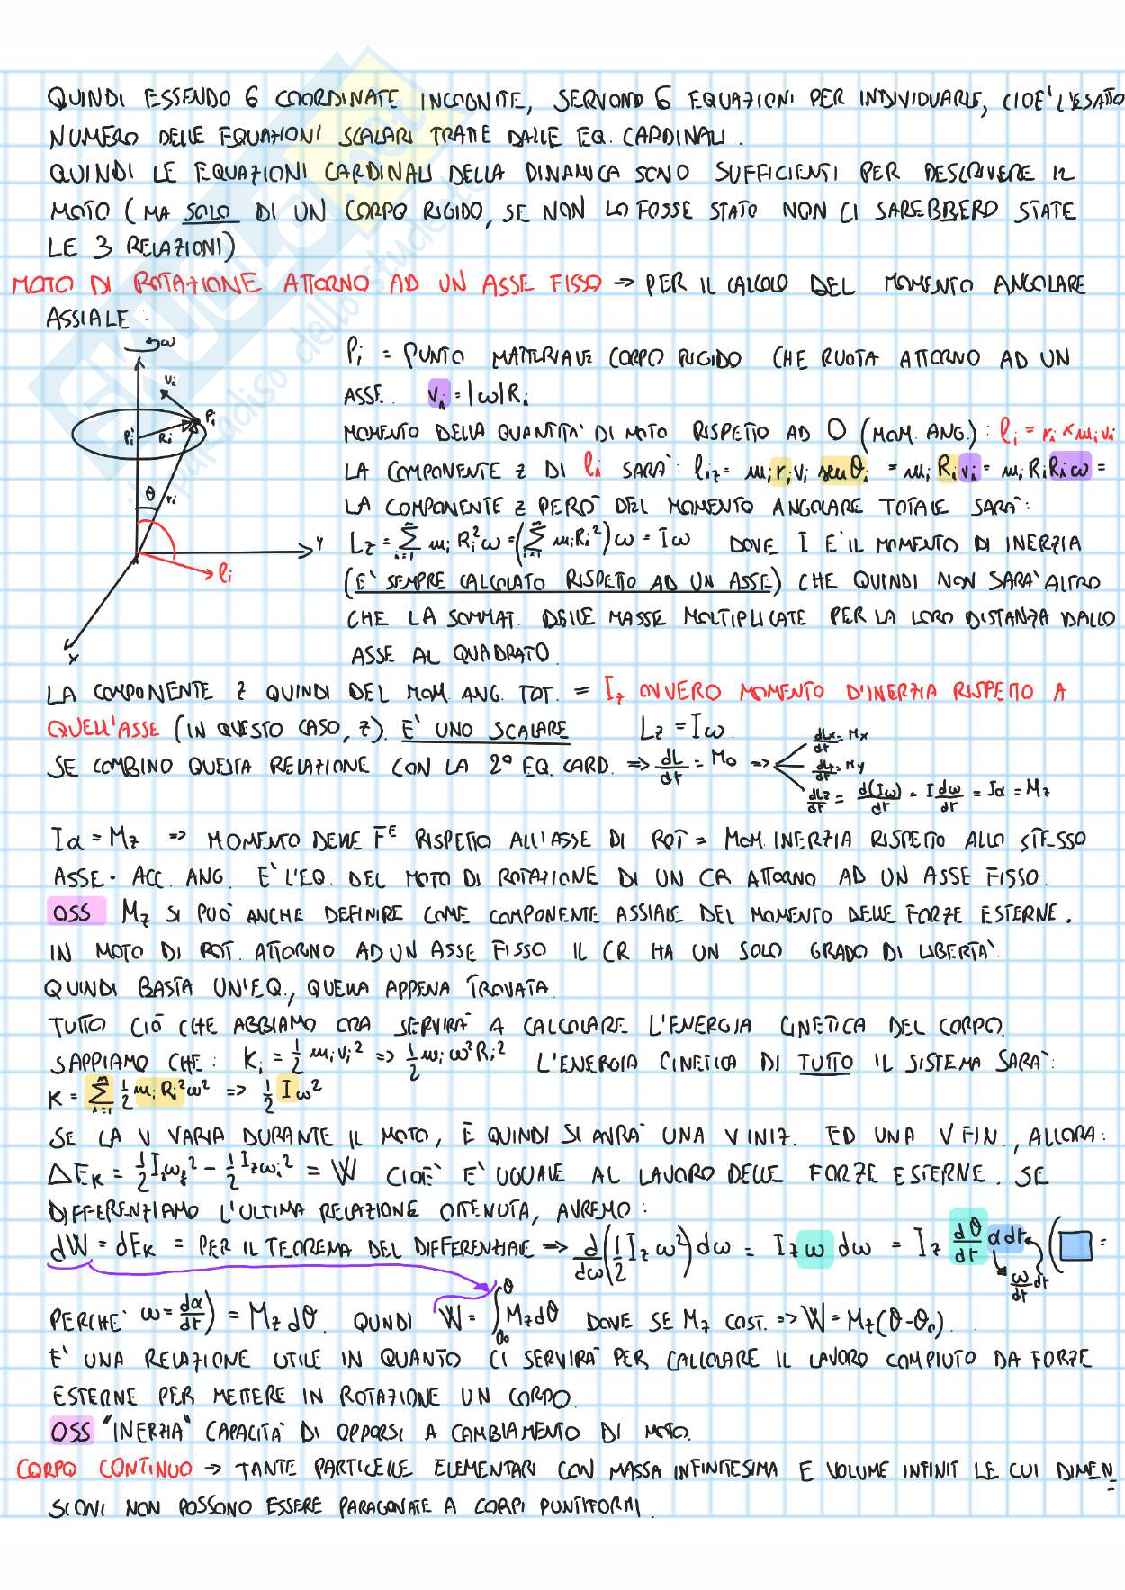 QUINDI ESSENDO 6 COORDINATE INCOGNITE, SERVONO 6 EQUAZIONI PER INDIVIDUARLE, CIOE' L'ESATTO
NUMERO DELLE EQUAZIONI SCALARI TRATTE DALLE EQ. CARDINALI.
QUINDI LE EQUAZIONI CARDINALI DELLA DINAMICA SONO SUFFICIENTI PER DESCRIVERE IL
MOTO (MA SOLO DI UN CORPO RIGIDO, SE NON LO FOSSE STATO NON CI SAREBBERO STATE
LE 3 RELAZIONI)
MOTO DI ROTAZIONE ATTORNO AD UN ASSE FISSO → PER IL CALCOLO DEL MOMENTO ANGOLARE
ASSIALE:
ω
Vi
Pi
Pi'
Ri
θ
ri
Y
li
X
Pi = PUNTO MATERIALE CORPO RIGIDO CHE RUOTA ATTORNO AD UN
ASSE. Vi = |ω|Ri
MOMENTO DELLA QUANTITA' DI MOTO RISPETTO AD O (MOM. ANG.): li = ri × mivi
LA COMPONENTE Z DI li SARA': liz = mi ri vi senθi = mi Ri vi = mi Ri Ri ω =
LA COMPONENTE Z PERO' DEL MOMENTO ANGOLARE TOTALE SARA':
Lz = Σ mi Ri²ω = (Σ mi Ri²) ω = Iω DOVE I E' IL MOMENTO DI INERZIA
(E' SEMPRE CALCOLATO RISPETTO AD UN ASSE) CHE QUINDI NON SARA' ALTRO
CHE LA SOMMAT. DELLE MASSE MOLTIPLICATE PER LA LORO DISTANZA DALLO
ASSE AL QUADRATO.
LA COMPONENTE Z QUINDI DEL MOM. ANG. TOT. = Iz OVVERO MOMENTO D'INERZIA RISPETTO A
QUELL'ASSE (IN QUESTO CASO, Z). E' UNO SCALARE Lz = Iω
SE COMBINO QUESTA RELAZIONE CON LA 2° EQ. CARD. ⇒ dL/dt = Mo ⇒ dLx/dt = Mx
dLy/dt = My
dLz/dt = d(Iω)/dt = I dω/dt = Iα = Mz
Iα = Mz ⇒ MOMENTO DELLE Fᴱ RISPETTO ALL'ASSE DI ROT = MOM. INERZIA RISPETTO ALLO STESSO
ASSE · ACC. ANG. E' L'EQ. DEL MOTO DI ROTAZIONE DI UN CR ATTORNO AD UN ASSE FISSO.
OSS Mz SI PUO' ANCHE DEFINIRE COME COMPONENTE ASSIALE DEL MOMENTO DELLE FORZE ESTERNE.
IN MOTO DI ROT. ATTORNO AD UN ASSE FISSO IL CR HA UN SOLO GRADO DI LIBERTA'
QUINDI BASTA UN'EQ., QUELLA APPENA TROVATA.
TUTTO CIO' CHE ABBIAMO ORA SERVIRA' A CALCOLARE L'ENERGIA CINETICA DEL CORPO.
SAPPIAMO CHE: Ki = 1/2 mi vi² ⇒ 1/2 mi ω² Ri² L'ENERGIA CINETICA DI TUTTO IL SISTEMA SARA':
K = Σ 1/2 mi Ri² ω² ⇒ 1/2 I ω²
SE LA V VARIA DURANTE IL MOTO, E QUINDI SI AVRA' UNA V INIZ. ED UNA V FIN., ALLORA:
ΔEK = 1/2 Izωf² - 1/2 Izωi² = W CIOE' E' UGUALE AL LAVORO DELLE FORZE ESTERNE. SE
DIFFERENZIAMO L'ULTIMA RELAZIONE OTTENUTA, AVREMO:
dW = dEK = PER IL TEOREMA DEL DIFFERENZIALE ⇒ d/dω (1/2 Iz ω²) dω = Iz ω dω = Iz dθ/dt α dt (□ =
ω/dt dt
PERCHE' ω = dα/dt) = Mz dθ. QUNDI W = ∫ Mz dθ DOVE SE Mz COST. ⇒ W = Mz(θ-θo).
E' UNA RELAZIONE UTILE IN QUANTO CI SERVIRA' PER CALCOLARE IL LAVORO COMPIUTO DA FORZE
ESTERNE PER METTERE IN ROTAZIONE UN CORPO.
OSS "INERZIA" CAPACITA' DI OPPORSI A CAMBIAMENTO DI MOTO.
CORPO CONTINUO → TANTE PARTICELLE ELEMENTARI CON MASSA INFINITESIMA E VOLUME INFINIT LE CUI DIMEN
SIONI NON POSSONO ESSERE PARAGONATE A CORPI PUNTIFORMI.